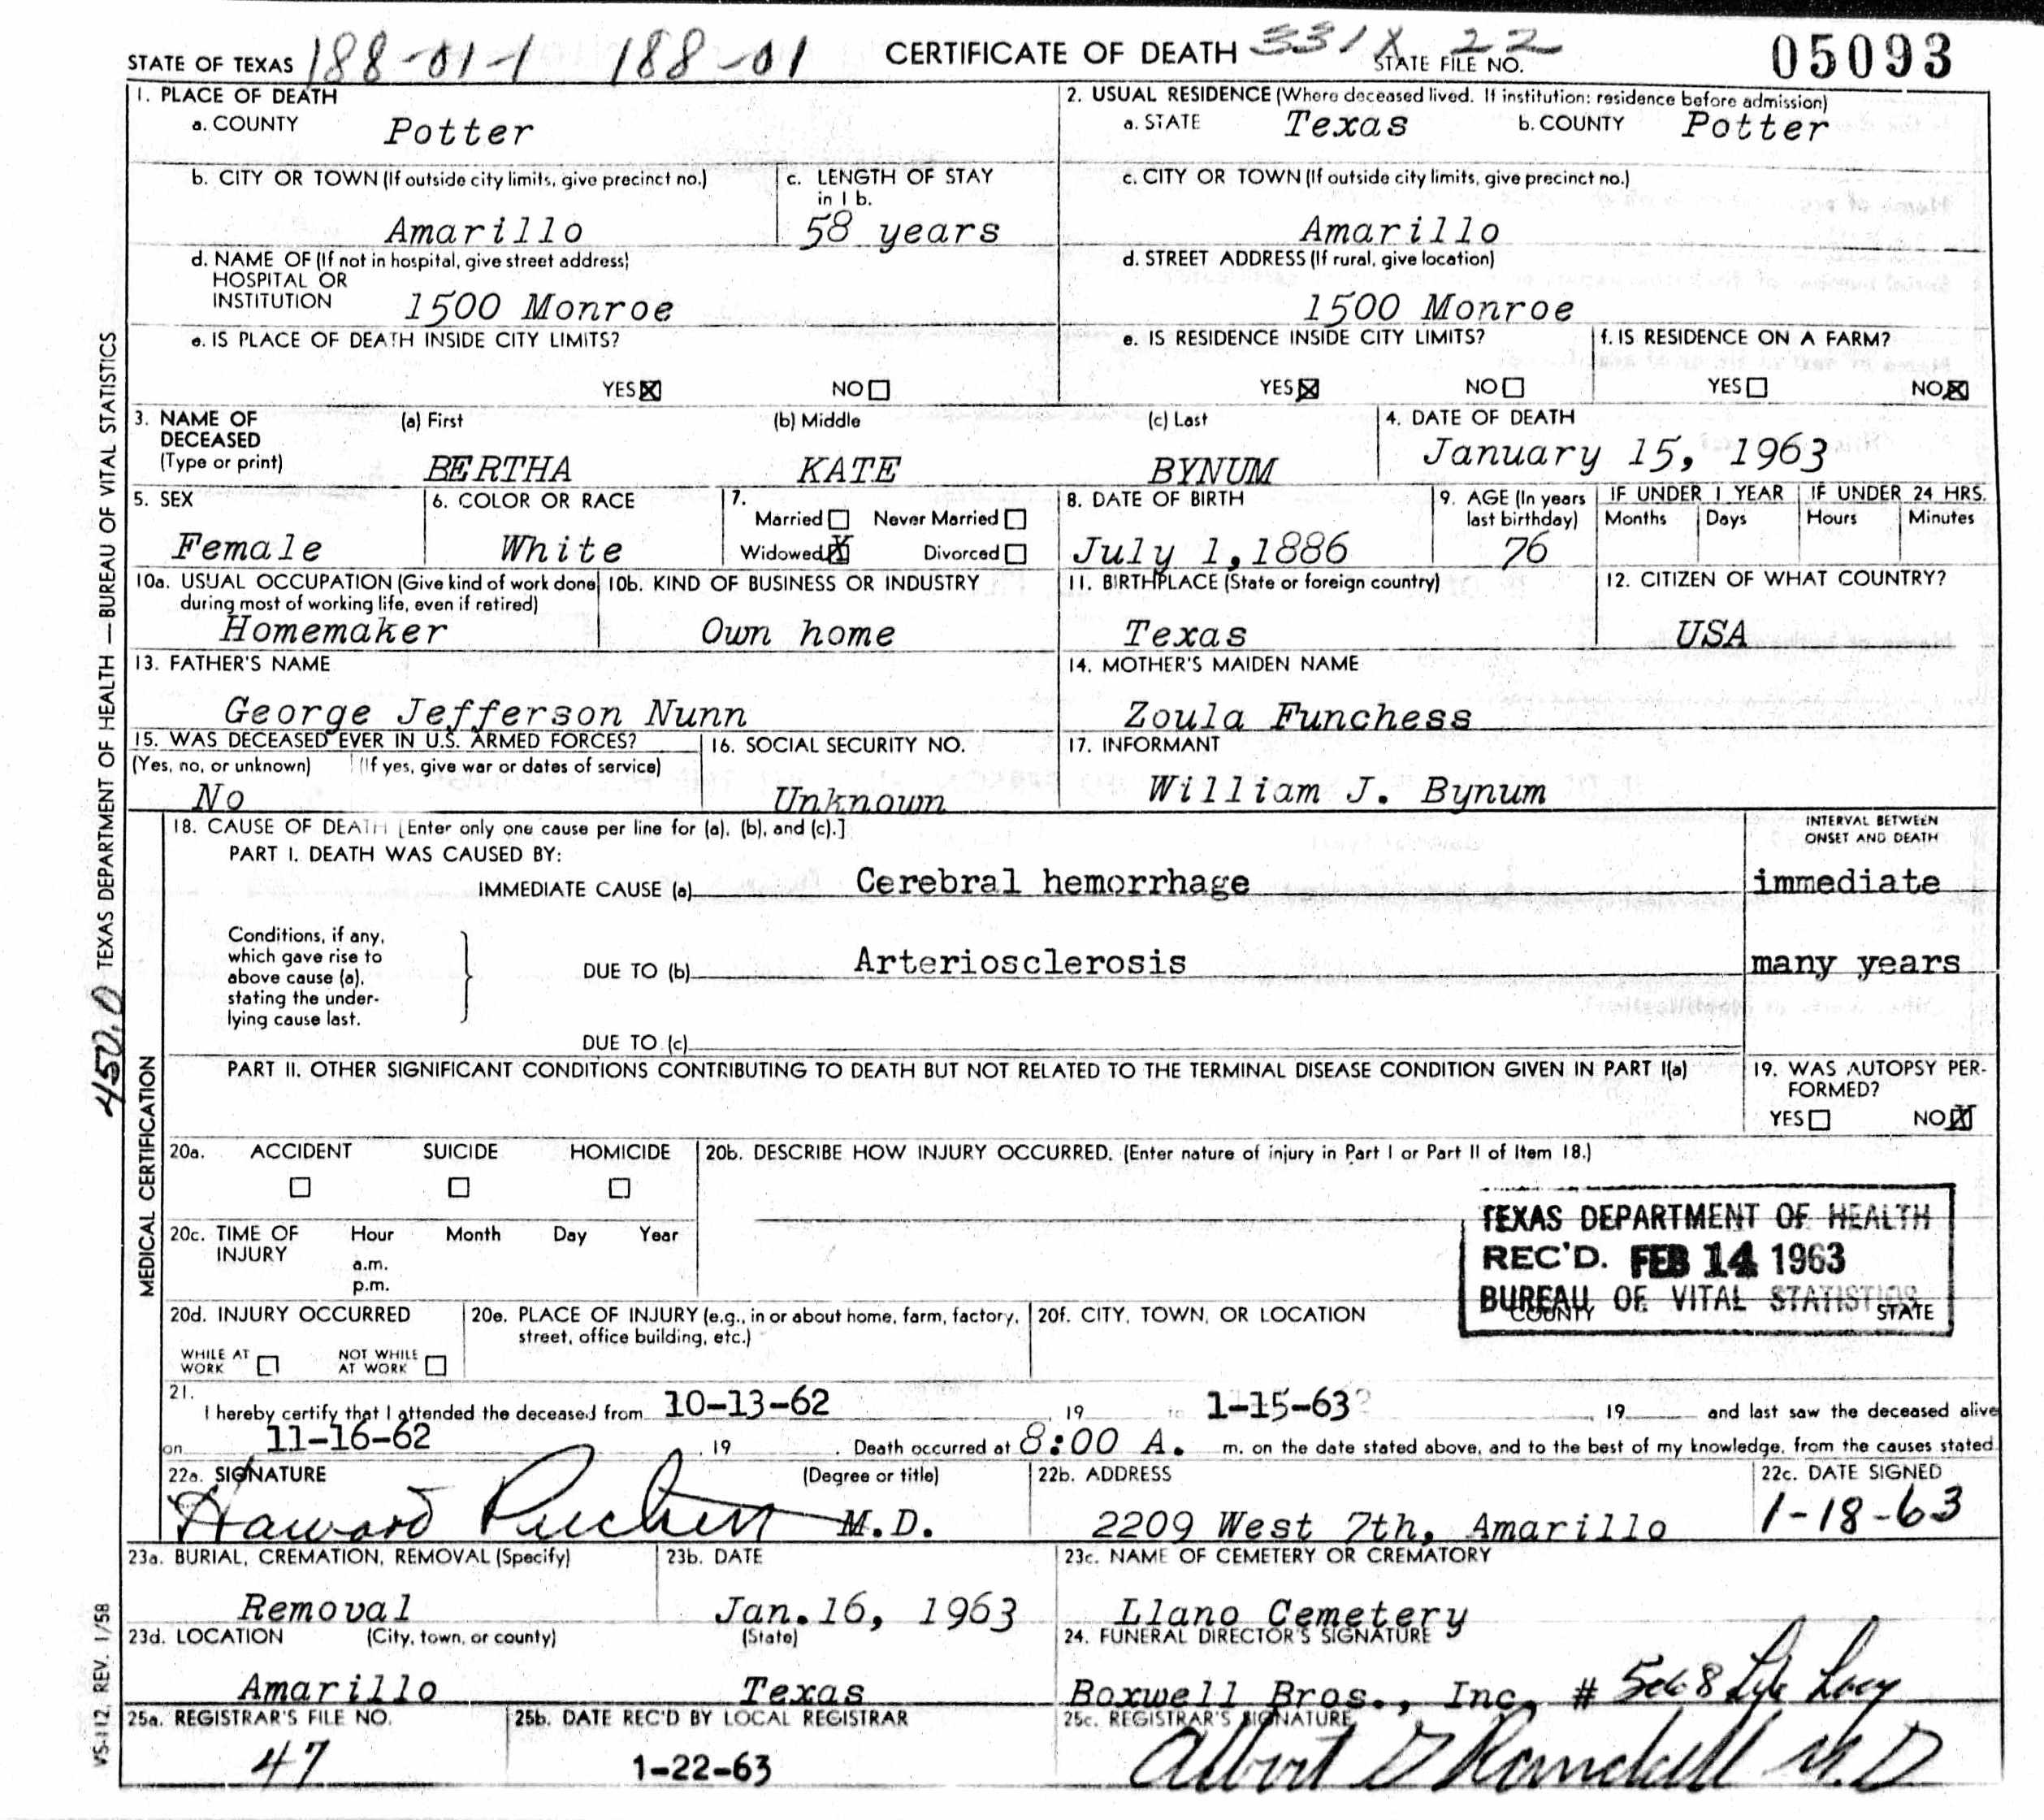 STATE OF TEXAS 188-01-1 188-01 CERTIFICATE OF DEATH 331X 22 STATE FILE NO. 05093
1. PLACE OF DEATH
a. COUNTY Potter
2. USUAL RESIDENCE (Where deceased lived. If institution: residence before admission)
a. STATE Texas b. COUNTY Potter
b. CITY OR TOWN (If outside city limits, give precinct no.)
Amarillo
c. LENGTH OF STAY
in 1 b.
58 years
c. CITY OR TOWN (If outside city limits, give precinct no.)
Amarillo
d. NAME OF (If not in hospital, give street address)
HOSPITAL OR
INSTITUTION 1500 Monroe
d. STREET ADDRESS (If rural, give location)
1500 Monroe
e. IS PLACE OF DEATH INSIDE CITY LIMITS?
YES☒ NO☐
e. IS RESIDENCE INSIDE CITY LIMITS?
YES☒ NO☐
f. IS RESIDENCE ON A FARM?
YES☐ NO☒
3. NAME OF
DECEASED
(Type or print)
(a) First (b) Middle (c) Last
BERTHA KATE BYNUM
4. DATE OF DEATH
January 15, 1963
5. SEX
Female
6. COLOR OR RACE
White
7.
Married☐ Never Married☐
Widowed☒ Divorced☐
8. DATE OF BIRTH
July 1, 1886
9. AGE (In years
last birthday)
76
IF UNDER 1 YEAR
Months Days
IF UNDER 24 HRS.
Hours Minutes
10a. USUAL OCCUPATION (Give kind of work done
during most of working life, even if retired)
Homemaker
10b. KIND OF BUSINESS OR INDUSTRY
Own home
11. BIRTHPLACE (State or foreign country)
Texas
12. CITIZEN OF WHAT COUNTRY?
USA
13. FATHER'S NAME
George Jefferson Nunn
14. MOTHER'S MAIDEN NAME
Zoula Funchess
15. WAS DECEASED EVER IN U.S. ARMED FORCES?
(Yes, no, or unknown) (If yes, give war or dates of service)
No
16. SOCIAL SECURITY NO.
Unknown
17. INFORMANT
William J. Bynum
18. CAUSE OF DEATH [Enter only one cause per line for (a), (b), and (c).]
PART I. DEATH WAS CAUSED BY:
INTERVAL BETWEEN
ONSET AND DEATH
IMMEDIATE CAUSE (a) Cerebral hemorrhage immediate
Conditions, if any,
which gave rise to
above cause (a),
stating the under-
lying cause last.
DUE TO (b) Arteriosclerosis many years
DUE TO (c)
PART II. OTHER SIGNIFICANT CONDITIONS CONTRIBUTING TO DEATH BUT NOT RELATED TO THE TERMINAL DISEASE CONDITION GIVEN IN PART I(a)
19. WAS AUTOPSY PER-
FORMED?
YES☐ NO☒
20a. ACCIDENT SUICIDE HOMICIDE
☐ ☐ ☐
20b. DESCRIBE HOW INJURY OCCURRED. (Enter nature of injury in Part I or Part II of Item 18.)
20c. TIME OF
INJURY
Hour Month Day Year
a.m.
p.m.
TEXAS DEPARTMENT OF HEALTH
REC'D. FEB 14 1963
BUREAU OF VITAL STATISTICS
20d. INJURY OCCURRED
WHILE AT
WORK ☐
NOT WHILE
AT WORK ☐
20e. PLACE OF INJURY (e.g., in or about home, farm, factory,
street, office building, etc.)
20f. CITY, TOWN, OR LOCATION COUNTY STATE
21.
I hereby certify that I attended the deceased from 10-13-62, 19 to 1-15-63, 19 and last saw the deceased alive
on 11-16-62, 19 . Death occurred at 8:00 A. m. on the date stated above, and to the best of my knowledge, from the causes stated.
22a. SIGNATURE (Degree or title)
Howard M.D.
22b. ADDRESS
2209 West 7th, Amarillo
22c. DATE SIGNED
1-18-63
23a. BURIAL, CREMATION, REMOVAL (Specify)
Removal
23b. DATE
Jan. 16, 1963
23c. NAME OF CEMETERY OR CREMATORY
Llano Cemetery
23d. LOCATION (City, town, or county) (State)
Amarillo Texas
24. FUNERAL DIRECTOR'S SIGNATURE
Boxwell Bros., Inc. #
25a. REGISTRAR'S FILE NO.
47
25b. DATE REC'D BY LOCAL REGISTRAR
1-22-63
25c. REGISTRAR'S SIGNATURE
Albert G Randall M.D
TEXAS DEPARTMENT OF HEALTH—BUREAU OF VITAL STATISTICS
450.0
MEDICAL CERTIFICATION
VS-112, REV. 1/58